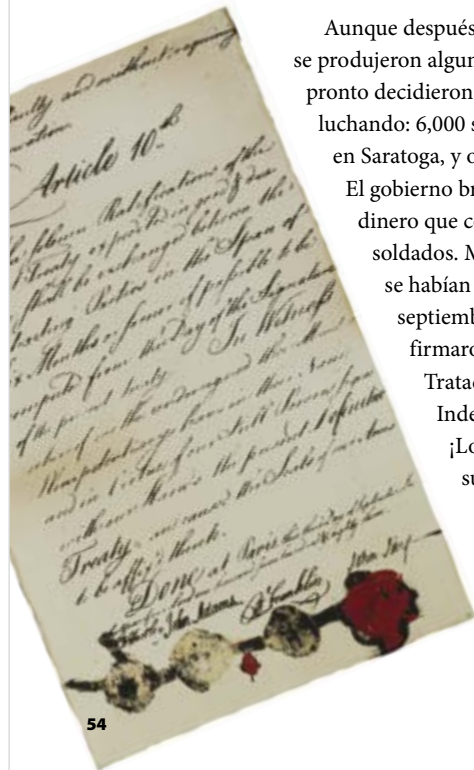 Aunque después
se produjeron algun
pronto decidieron
luchando: 6,000 s
en Saratoga, y o
El gobierno br
dinero que c
soldados. M
se habían
septiemb
firmaro
Tratad
Inde
¡Lo
su
faulty and without requiring
Article 10th
Ratifications of the
Treaty expedited in good & due
shall be exchanged between the
Parties in the Space of
Months or sooner if possible to be
computed from the Day of the Signature
of the present Treaty. In Witness
whereof we the undersigned their
Plenipotentiary have in their Name
and in Virtue of our Full Powers
with our Hands the present Definitive
Treaty, and caused the Seals of our Arms
to be affix'd thereto.
Done at Paris
John Adams B Franklin John Jay
54